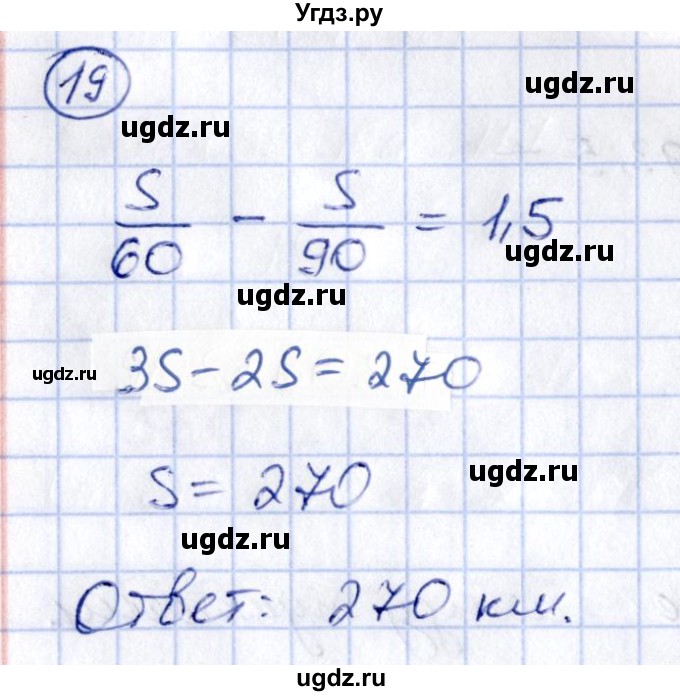 Угдз.ру
19
ugdz.ru
ugdz.ru
S/60 - S/90 = 1,5
ugdz.ru
ugdz.ru
ugdz.ru
3S - 2S = 270
S = 270
ugdz.ru
ugdz.ru
Ответ: 270 км.
ugdz.ru